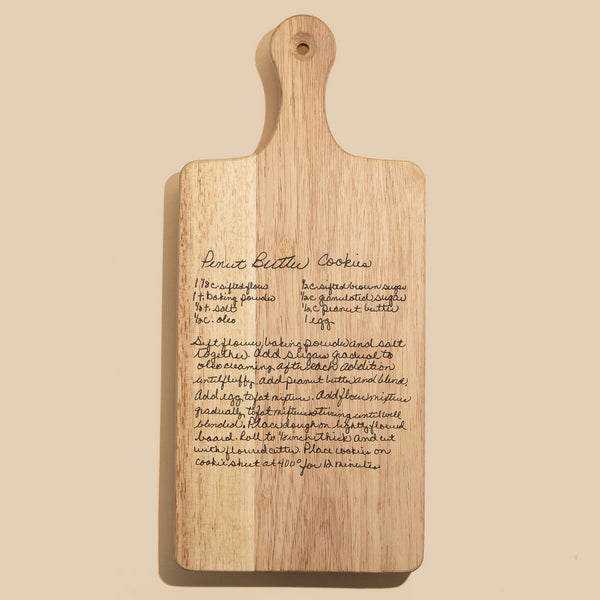 Penut Butter Cookies
1 7/8 c sifted flour
1 t. baking powder
1/8 t. salt
1/2 c. oleo
1/2 c sifted brown sugar
1/2 c granulated sugar
1/2 c peanut butter
1 egg
Sift flower, baking powder and salt
together. Add sugar gradual to
oleo creaming after each addition
until fluffy add peanut butter and blend.
Add egg to fat mixture. Add flour mixture
gradually to fat mixture stirring until well
blended. Place dough on lightly floured
board Roll to inch thick and cut
with floured cutter. Place cookies on
cookie sheet at 400° for 12 minutes